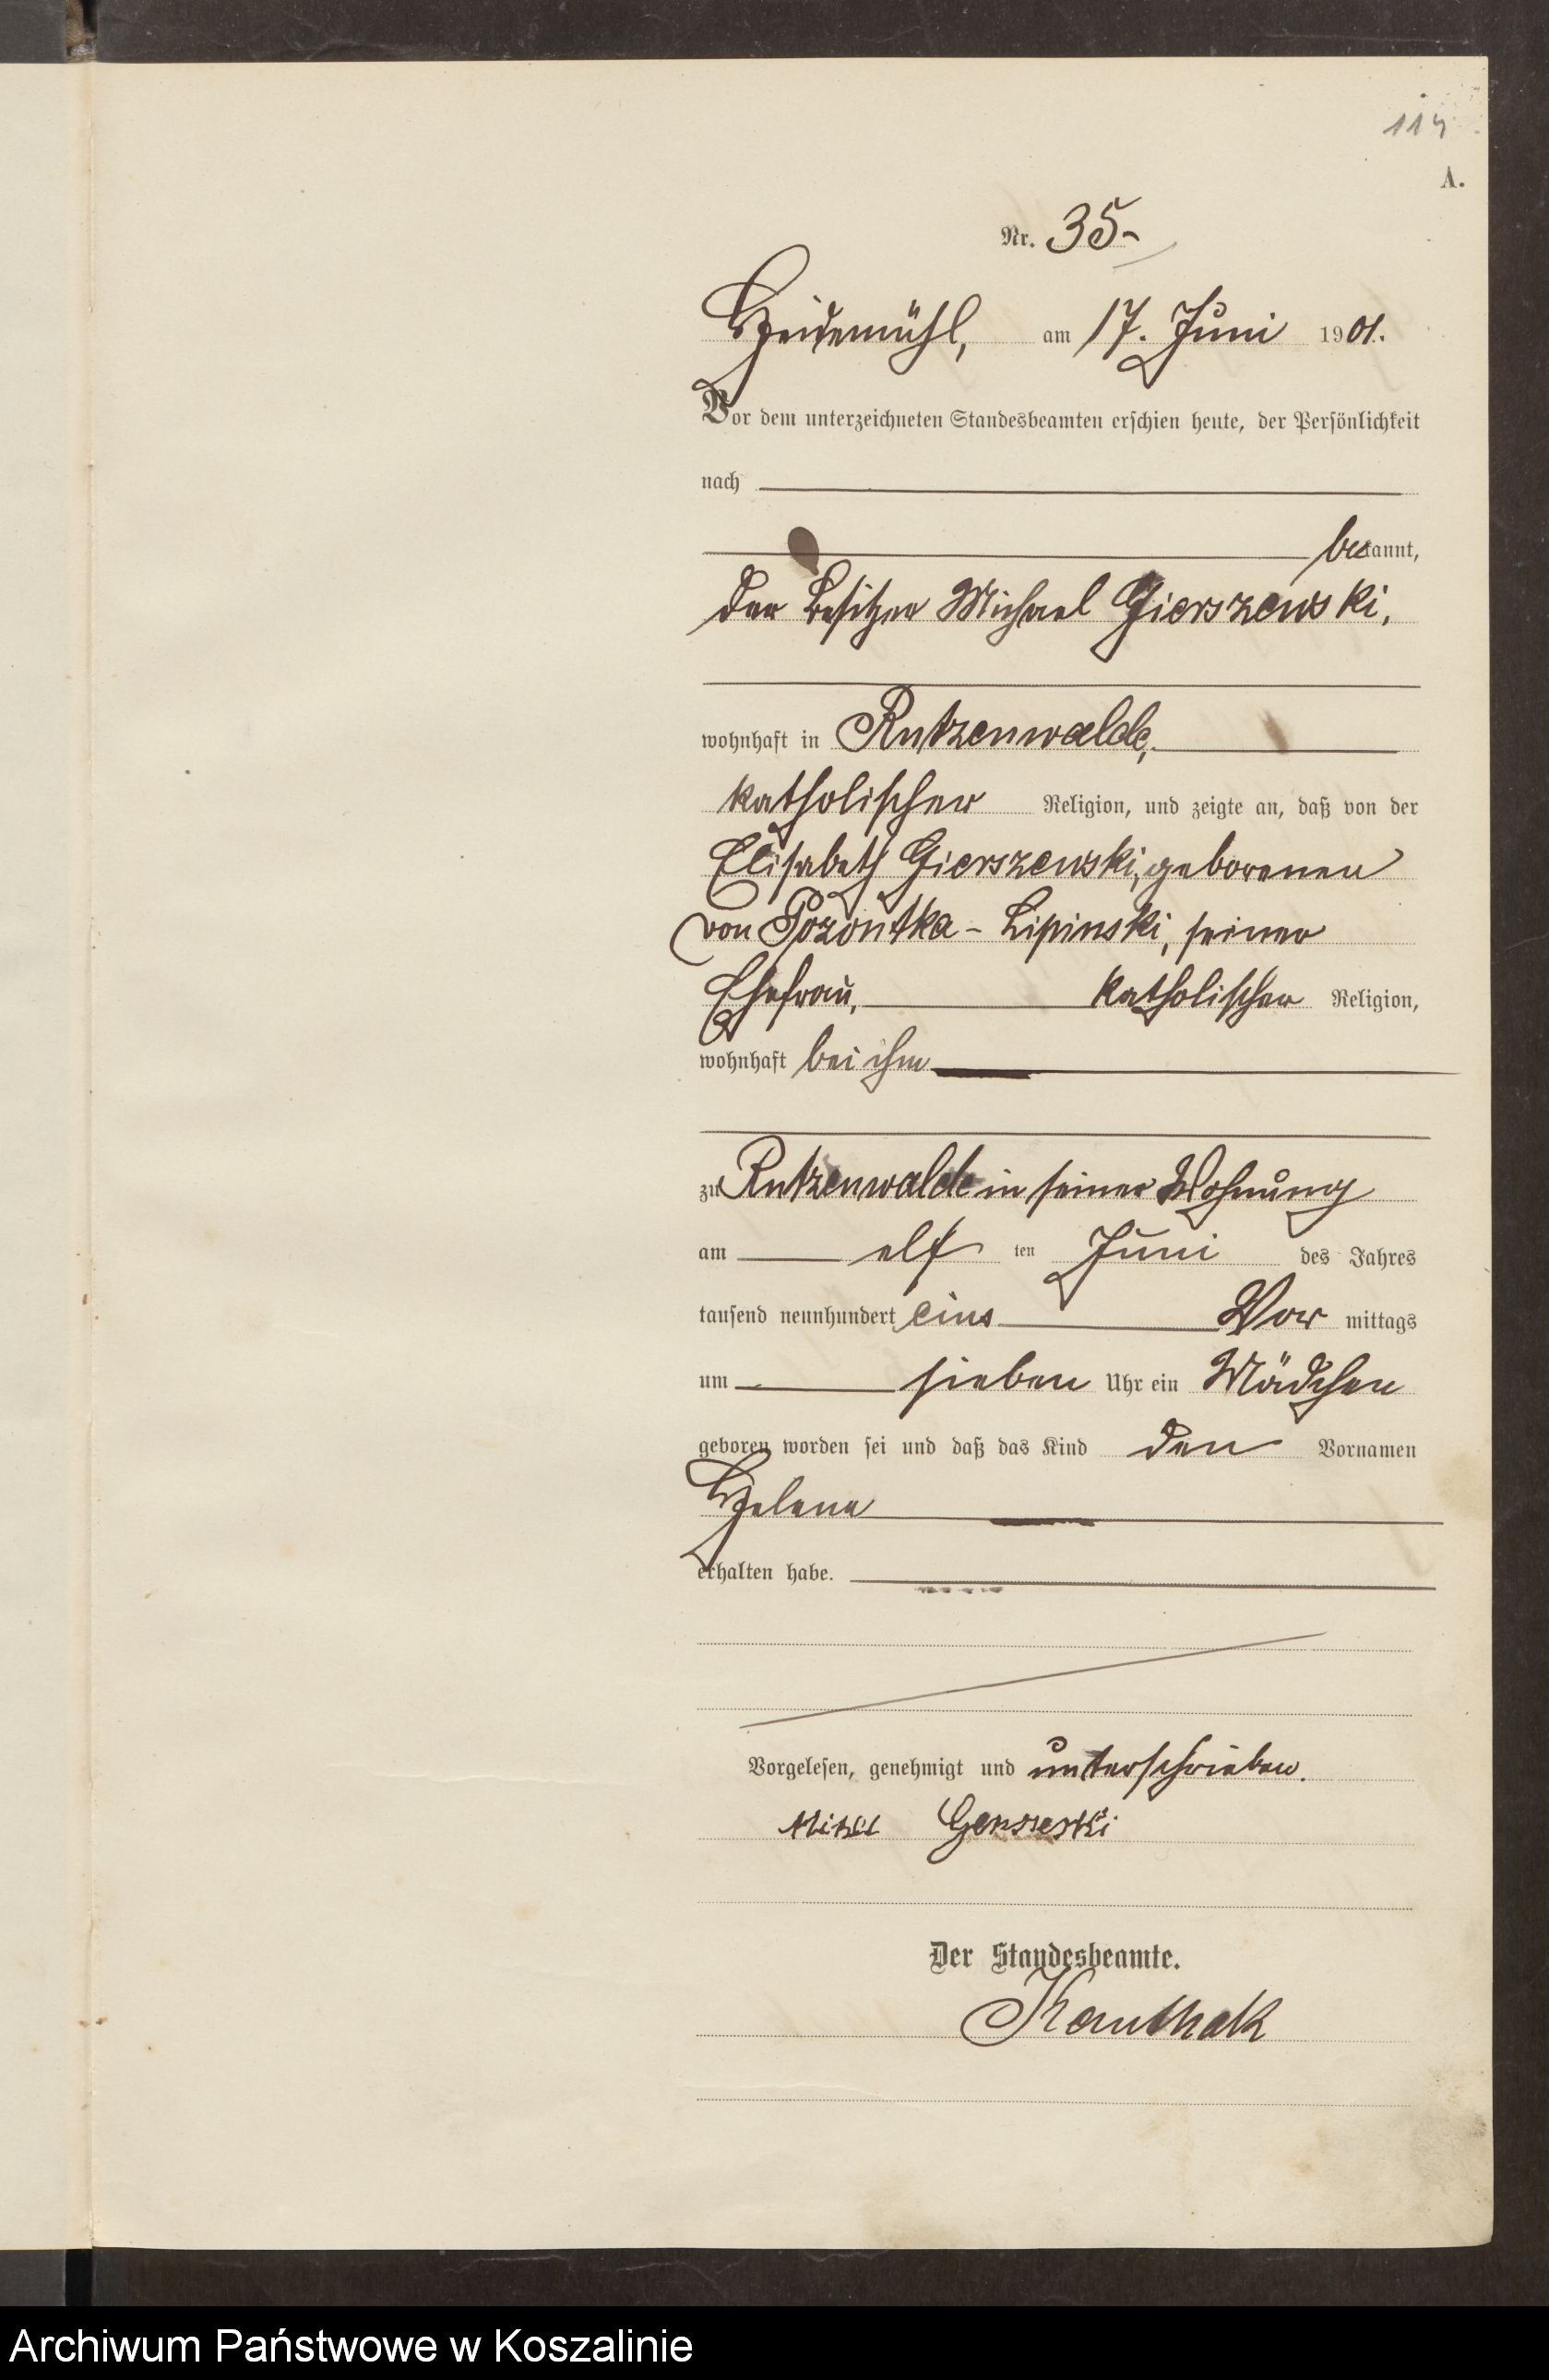 114
A.
Nr. 35.
Heidemühl, am 17. Juni 1901.
Vor dem unterzeichneten Standesbeamten erschien heute, der Persönlichkeit
nach
bekannt,
der Besitzer Michael Gierszewski,
wohnhaft in Rutzenwalde,
katholischer Religion, und zeigte an, daß von der
Elisabeth Gierszewski, geborenen
von Pozontka-Lipinski, seiner
Ehefrau, katholischer Religion,
wohnhaft bei ihm
zu Rutzenwalde in seiner Wohnung
am elf ten Juni des Jahres
tausend neunhundert eins Vor mittags
um sieben Uhr ein Mädchen
geboren worden sei und daß das Kind den Vornamen
Helene
erhalten habe.
Vorgelesen, genehmigt und unterschrieben.
Der Standesbeamte.
Kauthak
Archiwum Państwowe w Koszalinie